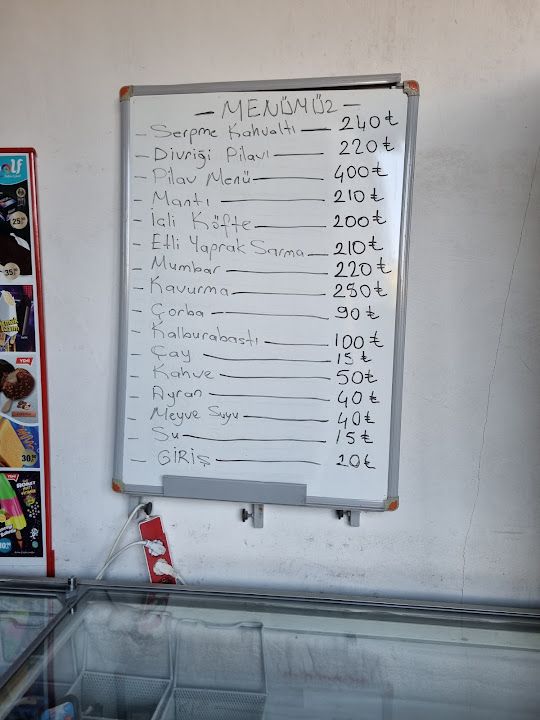 — MENÜMÜZ —
— Serpme Kahvaltı — 240 ₺
— Divriği Pilavı — 220 ₺
— Pilav Menü — 400 ₺
— Mantı — 210 ₺
— İçli Köfte — 200 ₺
— Etli Yaprak Sarma — 210 ₺
— Mumbar — 220 ₺
— Kavurma — 280 ₺
— Çorba — 90 ₺
— Kalburabastı — 100 ₺
— Çay — 15 ₺
— Kahve — 50 ₺
— Ayran — 40 ₺
— Meyve Suyu — 40 ₺
— Su — 15 ₺
— GİRİŞ — 20 ₺
25
35
YENİ
30
YENİ